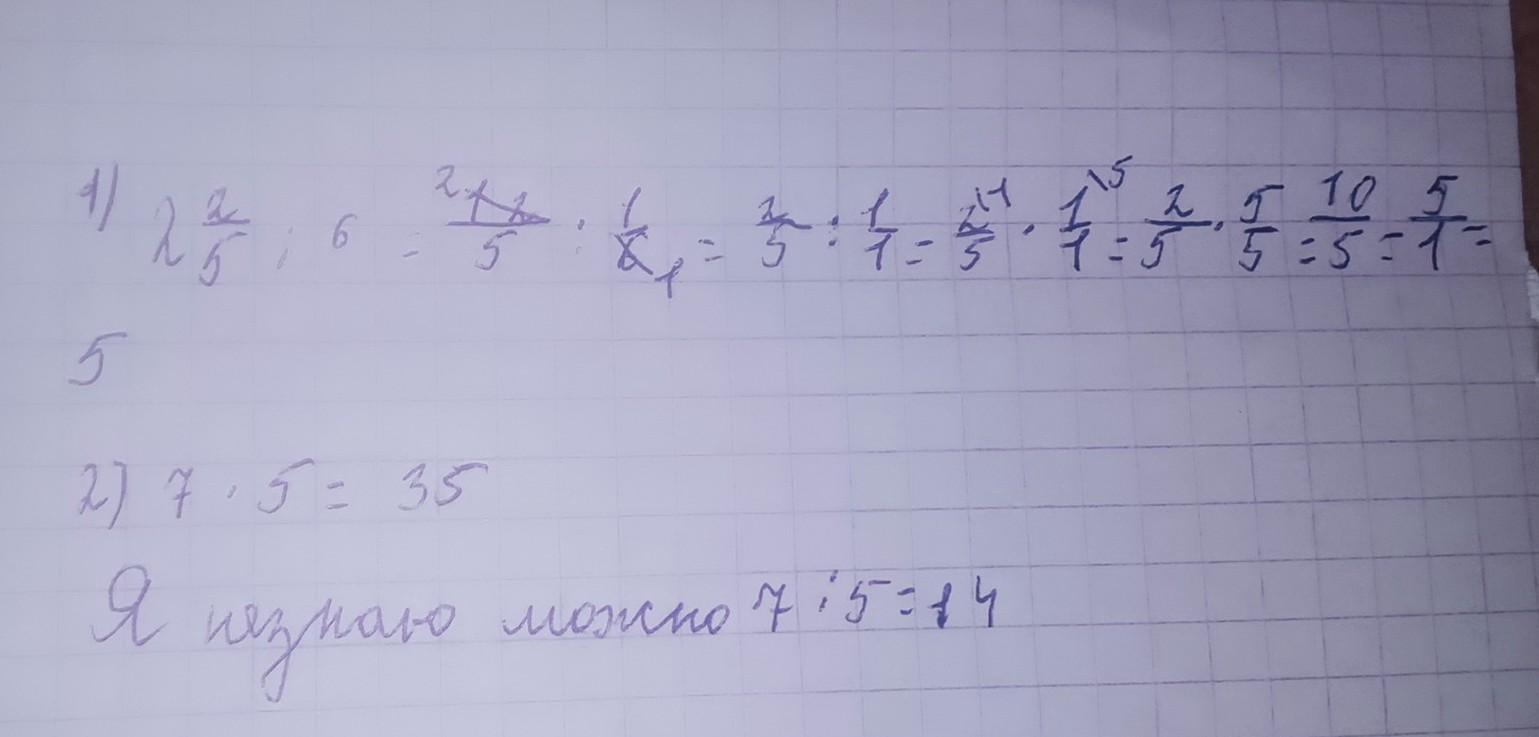 1) 2 2/5 : 6 = 2 12/5 : 1/6 1 = 2/5 : 1/1 = 2\1/5 · 1\5/1 = 2/5 · 5/5 = 10/5 = 5/1 =
5
2) 7 · 5 = 35
Я незнаю можно 7 : 5 = 14